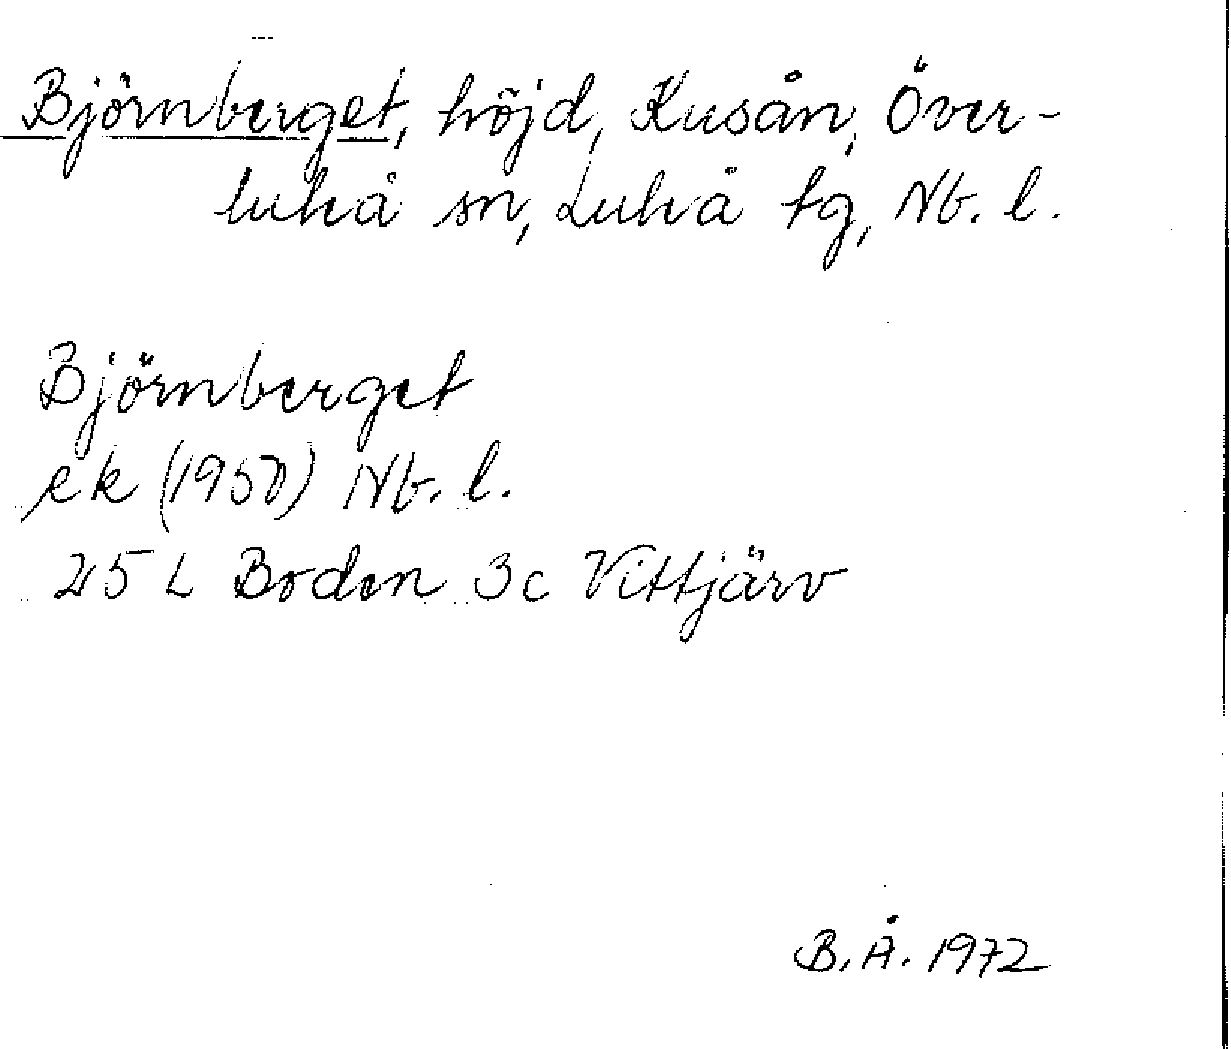 Björnberget, höjd, Kusån, Över-
luleå sn, Luleå tg, Nb. l.
Björnberget
ek (1950) Nb. l.
25 L Boden 3c Vittjärv
B.Å. 1972